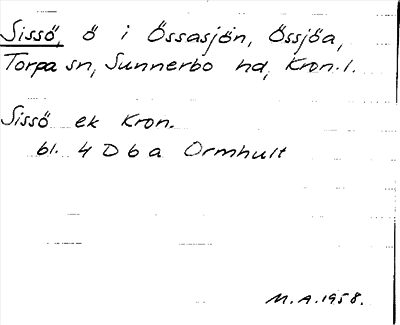 Sissö, ö i Össasjön, Össjöa,
Torpa sn, Sunnerbo hd, Kron. l.
Sissö ek Kron.
bl. 4 D 6 a Ormhult
M.A. 1958.